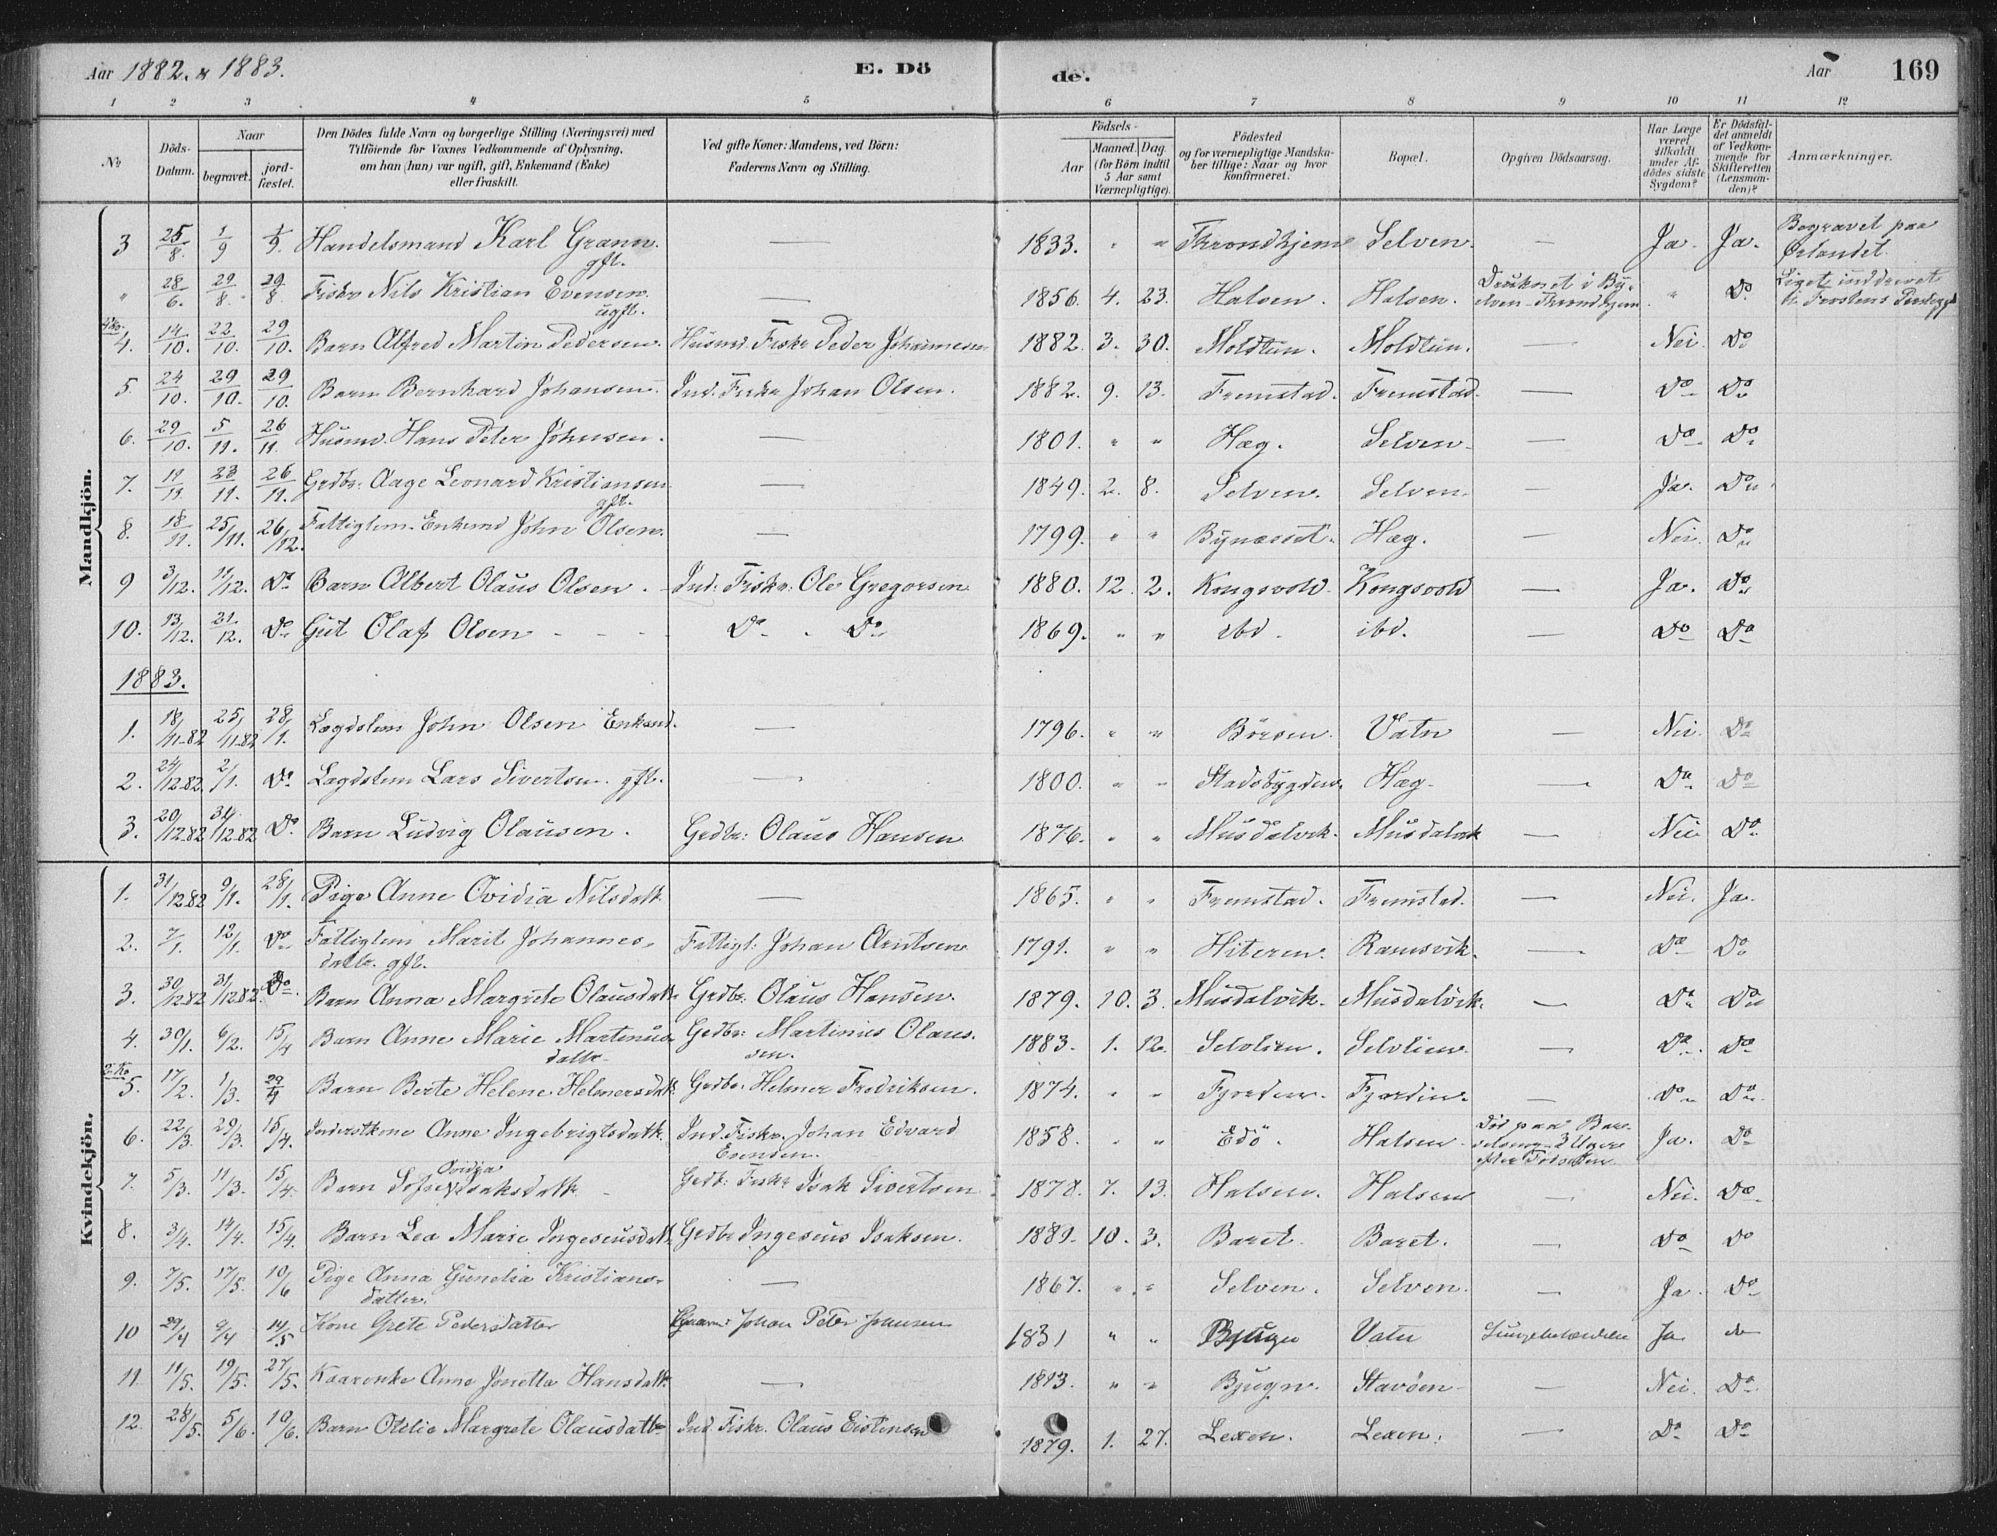 Aar 1882. & 1883. E. Dö de. Aar 169
1 2 3 4 5 6 7 8 9 10 11 12
No Döds-Datum. Naar begravet. jord-fæstet. Den Dödes fulde Navn og borgerlige Stilling (Næringsvei) med Tilföiende for Voxnes Vedkommende af Oplysning, om han (hun) var ugift, gift, Enkemand (Enke) eller fraskilt. Ved gifte Koner: Mandens, ved Börn: Faderens Navn og Stilling. Födsels- Aar Maaned. Dag. (for Börn indtil 5 Aar samt Værnepligtige). Födested og for værnepligtige Mandskaber tillige: Naar og hvor konfirmeret. Bopæl. Opgiven Dödsaarsag. Har Læge været tilkaldt under Afdödes sidste Sygdom? Er Dödsfaldet anmeldt af Vedkommende for Skifteretten (Lensmanden)? Anmærkninger.
Mandkjön.
3 25/8. 1/9 1/9. Handelsmand Karl Grann. gft. — 1833. " " Throndhjem Selven. — Ja. Ja. Begravet paa Ørlandet.
" 28/6. 29/8. 29/8. Fisker Nils Kristian Evensen. ugft. — 1856. 4. 23. Halsen. Halsen. Druknet i Byelven Throndhjem " Do
4. 14/10. 22/10. 29/10. Barn Alfred Martin Pedersen. Husmd. Fiskr Peder Johannesen 1882. 3. 30. Moldtun. Moldtun. — Nei. Do
5. 24/10. 29/10. 29/10. Barn Bernhard Johansen. Ind. Fiskr Johan Olsen. 1882. 9. 13. Fremstad. Fremstad. — Do Do
6. 29/10. 5/11. 26/11. Husmd. Hans Peter Johnsen. — 1801. " " Hæg. Selven. — Do Do
7. 19/11. 23/11. 26/11. Grdbr: Aage Leonard Kristiansen gft. — 1849. 2. 8. Selven. Selven. — Ja. Do
8. 18/11. 25/11. 26/12. Fattiglem. Enkemd John Olsen. — 1799. " " Bynæsset. Hæg. — Nei. Do
9 3/12. 11/12. Do Barn Albert Olaus Olsen. Ind: Fiskr: Ole Gregorsen 1880. 12. 2. Kongsvold. Kongsvold — Ja. Do
10. 13/12. 21/12. Do Gut Olaf Olsen - - - Do . Do 1869. " " ibd. ibd. — Do Do
1883.
1. 18/11-82 25/11-82 28/1. Lægdslem John Olsen Enkemd. — 1796. " " Börsen. Vatn — Nei. Do
2. 24/12.82. 2/1. Do Lægdslem Lars Sivertsen. gft. — 1800. " " Stadsbygden. Hæg. — Do Do
3. 20/12.82 31/12.82 Do. Barn Ludvig Olausen. Grdbr: Olaus Hansen 1876. " " Musdalvik. Musdalvik — Nei Do
Kvindekjön.
1. 31/12.82 9/1. 28/1. Pige Anne Ovidia Nilsdatt. — 1865. " " Fremstad. Fremstad. — Nei. Ja.
2. 7/1. 12/1. Do Fattiglem Marit Johannesdattr. gft. Fattigl: Johan Arntsen 1791. " " Hiteren. Ramsvik. — Do Do
3. 30/12.82 31/12.82. Do Barn Anna Margrete Olausdatt. Grdbr: Olaus Hansen. 1879. 10. 3. Musdalvik. Musdalvik. — Do Do
4. 30/1. 6/2. 15/4 Barn Anne Marie Martinusdattr. Grdbr: Martinus Olaussen. 1883. 1. 12. Selvlien. Selvlien. — Do Do
5. 17/2. 1/3. 29/4 Barn Berte Helene Helmersdatt. Grdbr. Helmer Fredriksen. 1874. " " Fjorden. Fjorden. — Do Do
6. 22/3. 29/3. 15/4. Inderstkone Anne Ingebrigtsdatt. Ind. Fiskr. Johan Edvard Evensen. 1858. " " Edö. Halsen. Död paa Barselseng 3 Uger efter Födselen Ja. Do
7. 5/3. 11/3. 15/4. Barn Sofie Ovidia Isaksdatt. Grdb: Fiskr Isak Sivertsen 1878. 7. 13. Halsen. Halsen — Nei. Do
8. 3/4. 14/4. 15/4. Barn Lea Marie Ingeseusdatt. Grdbr Ingeseus Isaksen. 1881. 10. 3. Baret. Baret. — Do Do
9. 7/5. 17/5. 10/6 Pige Anna Gunelia Kristiansdatter. — 1867. " " Selven. Selven. — Ja. Do
10 29/4 9/4 14/5 Kone Grete Pedersdatter Johan Peter Johansen 1831 " " Bjugn Vatn Lungebetændelse Ja do
11. 11/5. 19/5. 27/5. Kaarenke Anne Jonetta Hansdatt. — 1813. " " Bjugn. Stavöen — Nei. Do
12. 28/5. 5/6. 10/6. Barn Otelie Margrete Olausdattr Ind. Fiskr. Olaus Eistensen 1879. 1. 27. Lexen. Lexen. — Do Do